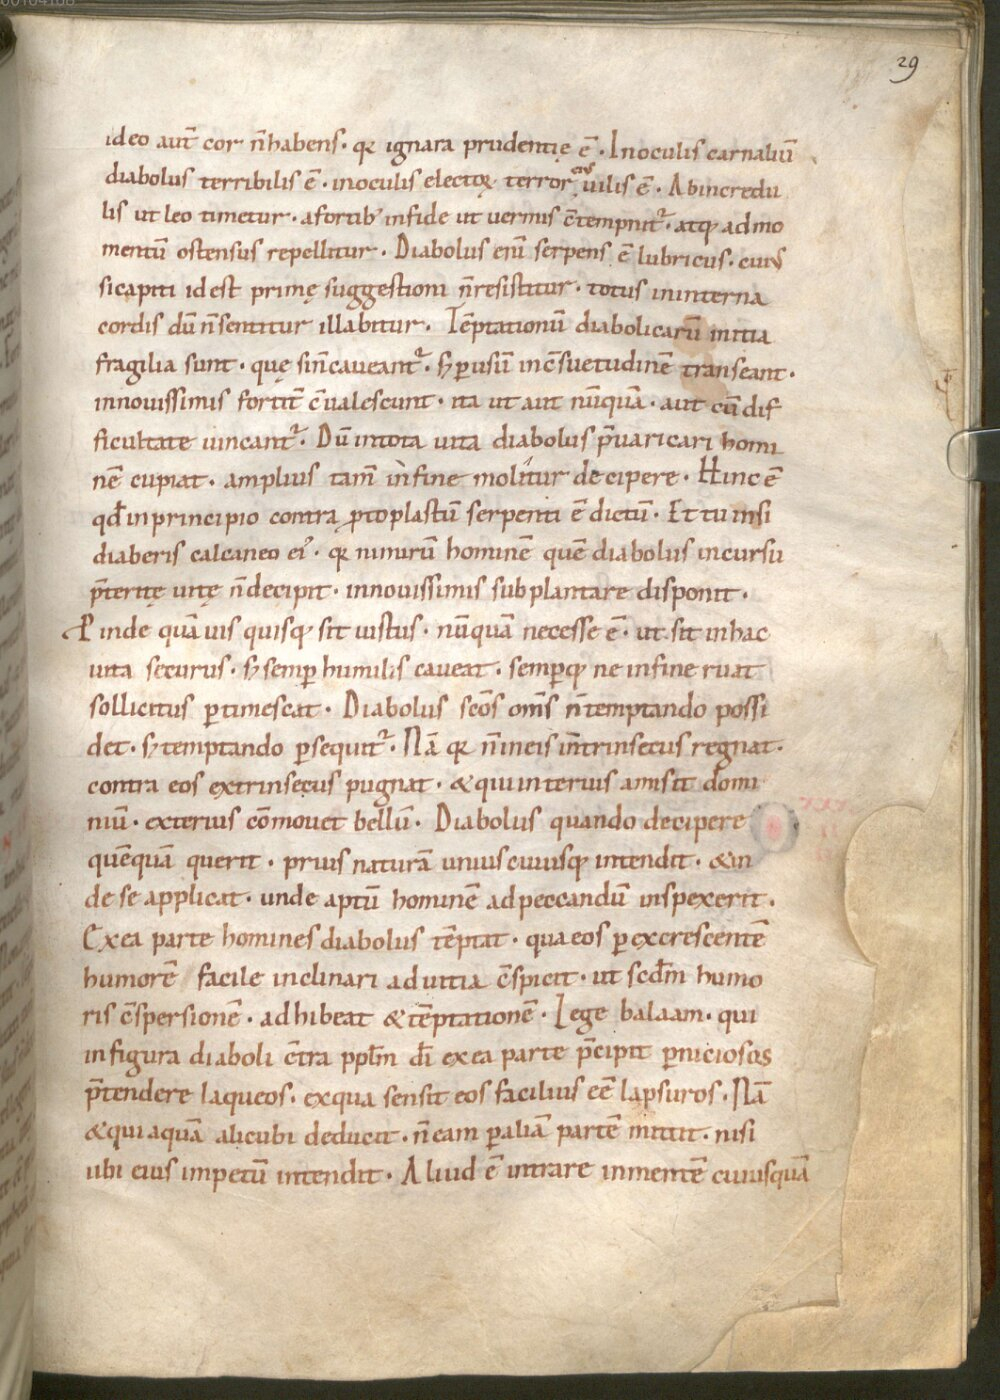 29
ideo aut̄ cor n̄ habens · qꝛ ignara prudentię ē · In oculis carnaliū
diabolus terribilis ē · in oculis electoꝝ · terror eius uilis ē · Ab incredu
lis ut leo timetur · a fortibꝰ in fide ut uermis c̄tempnit᷑ · atqꝫ ad mo
mentū ostensus repellitur · Diabolus enī serpens ē lubricus · cuius
si capiti id est primę suggestioni n̄ resistitur · totus in interna
cordis dū n̄ sentitur illabitur · Tēptationū diabolicarū initia
fragilia sunt · quę si n̄ caueant᷑ · sꝫ ꝑ usū in c̄suetudinē transeant ·
in nouissimis fortit̄ c̄ualescunt · ita ut aut nūquā · aut cū dif
ficultate uincant᷑ · Dū in tota uita diabolus p̄uaricari homi
nē cupiat · amplius tam̄ in fine molitur decipere · Hinc ē
qđ in principio contra ꝓtoplastū serpenti ē dictū · Et tu insi
diaberis calcaneo eiꝰ · qꝛ nimirū hominē quē diabolus in cursu
p̄teritę uitę n̄ decipit · in nouissimis subplantare disponit ·
Proinde quāuis quisqꝫ sit iustus · nūquā necesse ē · ut sit in hac
uita securus · sꝫ semꝑ humilis caueat · semꝑqꝫ ne in fine ruat
sollicitus ꝑtimescat · Diabolus sc̄os om̄s n̄ temptando possi
det · sꝫ temptando ꝑsequit᷑ · Nā qꝛ n̄ in eis īntrinsecus regnat ·
contra eos extrinsecus pugnat · & qui interius amisit domi
niū · exterius cōmouet bellū · Diabolus quando decipere
quēquā querit · prius naturā uniuscuiusqꝫ intendit · & in
de se applicat · unde aptū hominē ad peccandū inspexerit ·
Ex ea parte homines diabolus tēptat · qua eos ꝑ excrescentē
humorē facile inclinari ad uitia c̄spicit · ut scd̄m humo
ris c̄spersionē · adhibeat & tēptationē · Lege balaam · qui
in figura diaboli c̄tra ppl̄m dī ex ea parte p̄cipit ꝑniciosos
p̄tendere laqueos · ex qua sensit eos facilius eē lapsuros · Nā
& qui aquā alicubi deducit · n̄ eam ꝑ aliā partē mittit · nisi
ubi eius impetū intendit · Aliud ē intrare in mentē cuiusquā